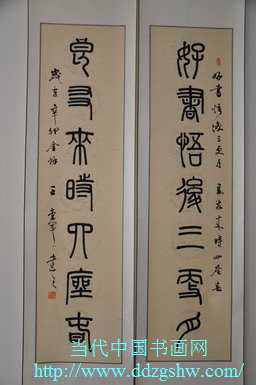 好書悟後三更月
好書悟後三更月 良友來時四座春
良友來時四座春
歲在辛卯金秋
王
当代中国书画网
http://www.ddzgshw.com